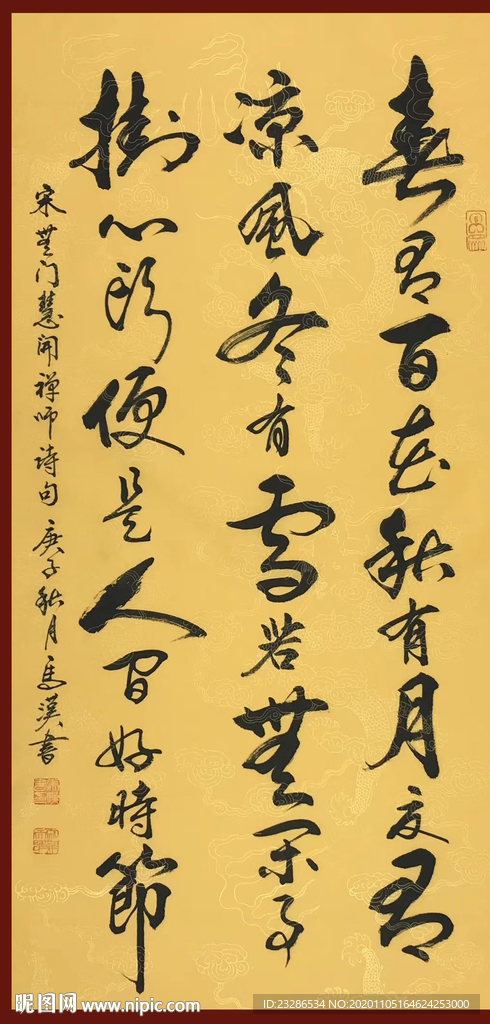 春有百花秋有月夏有
凉風冬有雪若無閑事
掛心頭便是人間好時節
宋無門慧開禪師詩句 庚子秋月馬漢書
昵图网 www.nipic.com
ID:23286534 NO:20201105164624253000